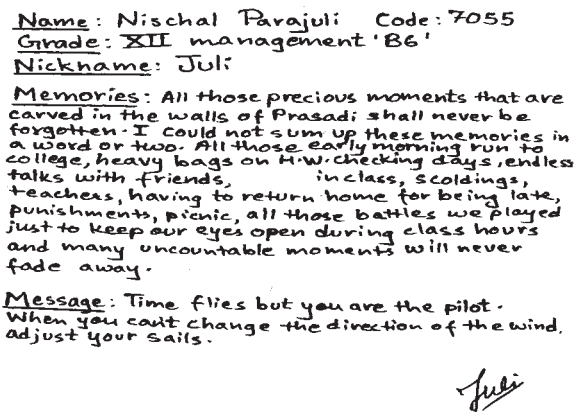 Name: Nischal Parajuli Code: 7055
Grade: XII management 'B6'
Nickname: Juli
Memories: All those precious moments that are
carved in the walls of Prasadi shall never be
forgotten. I could not sum up these memories in
a word or two. All those early morning run to
college, heavy bags on H.W. checking days, endless
talks with friends, in class, scoldings,
teachers, having to return home for being late,
punishments, picnic, all those battles we played
just to keep our eyes open during class hours
and many uncountable moments will never
fade away.
Message: Time flies but you are the pilot.
When you can't change the direction of the wind,
adjust your sails.
Juli